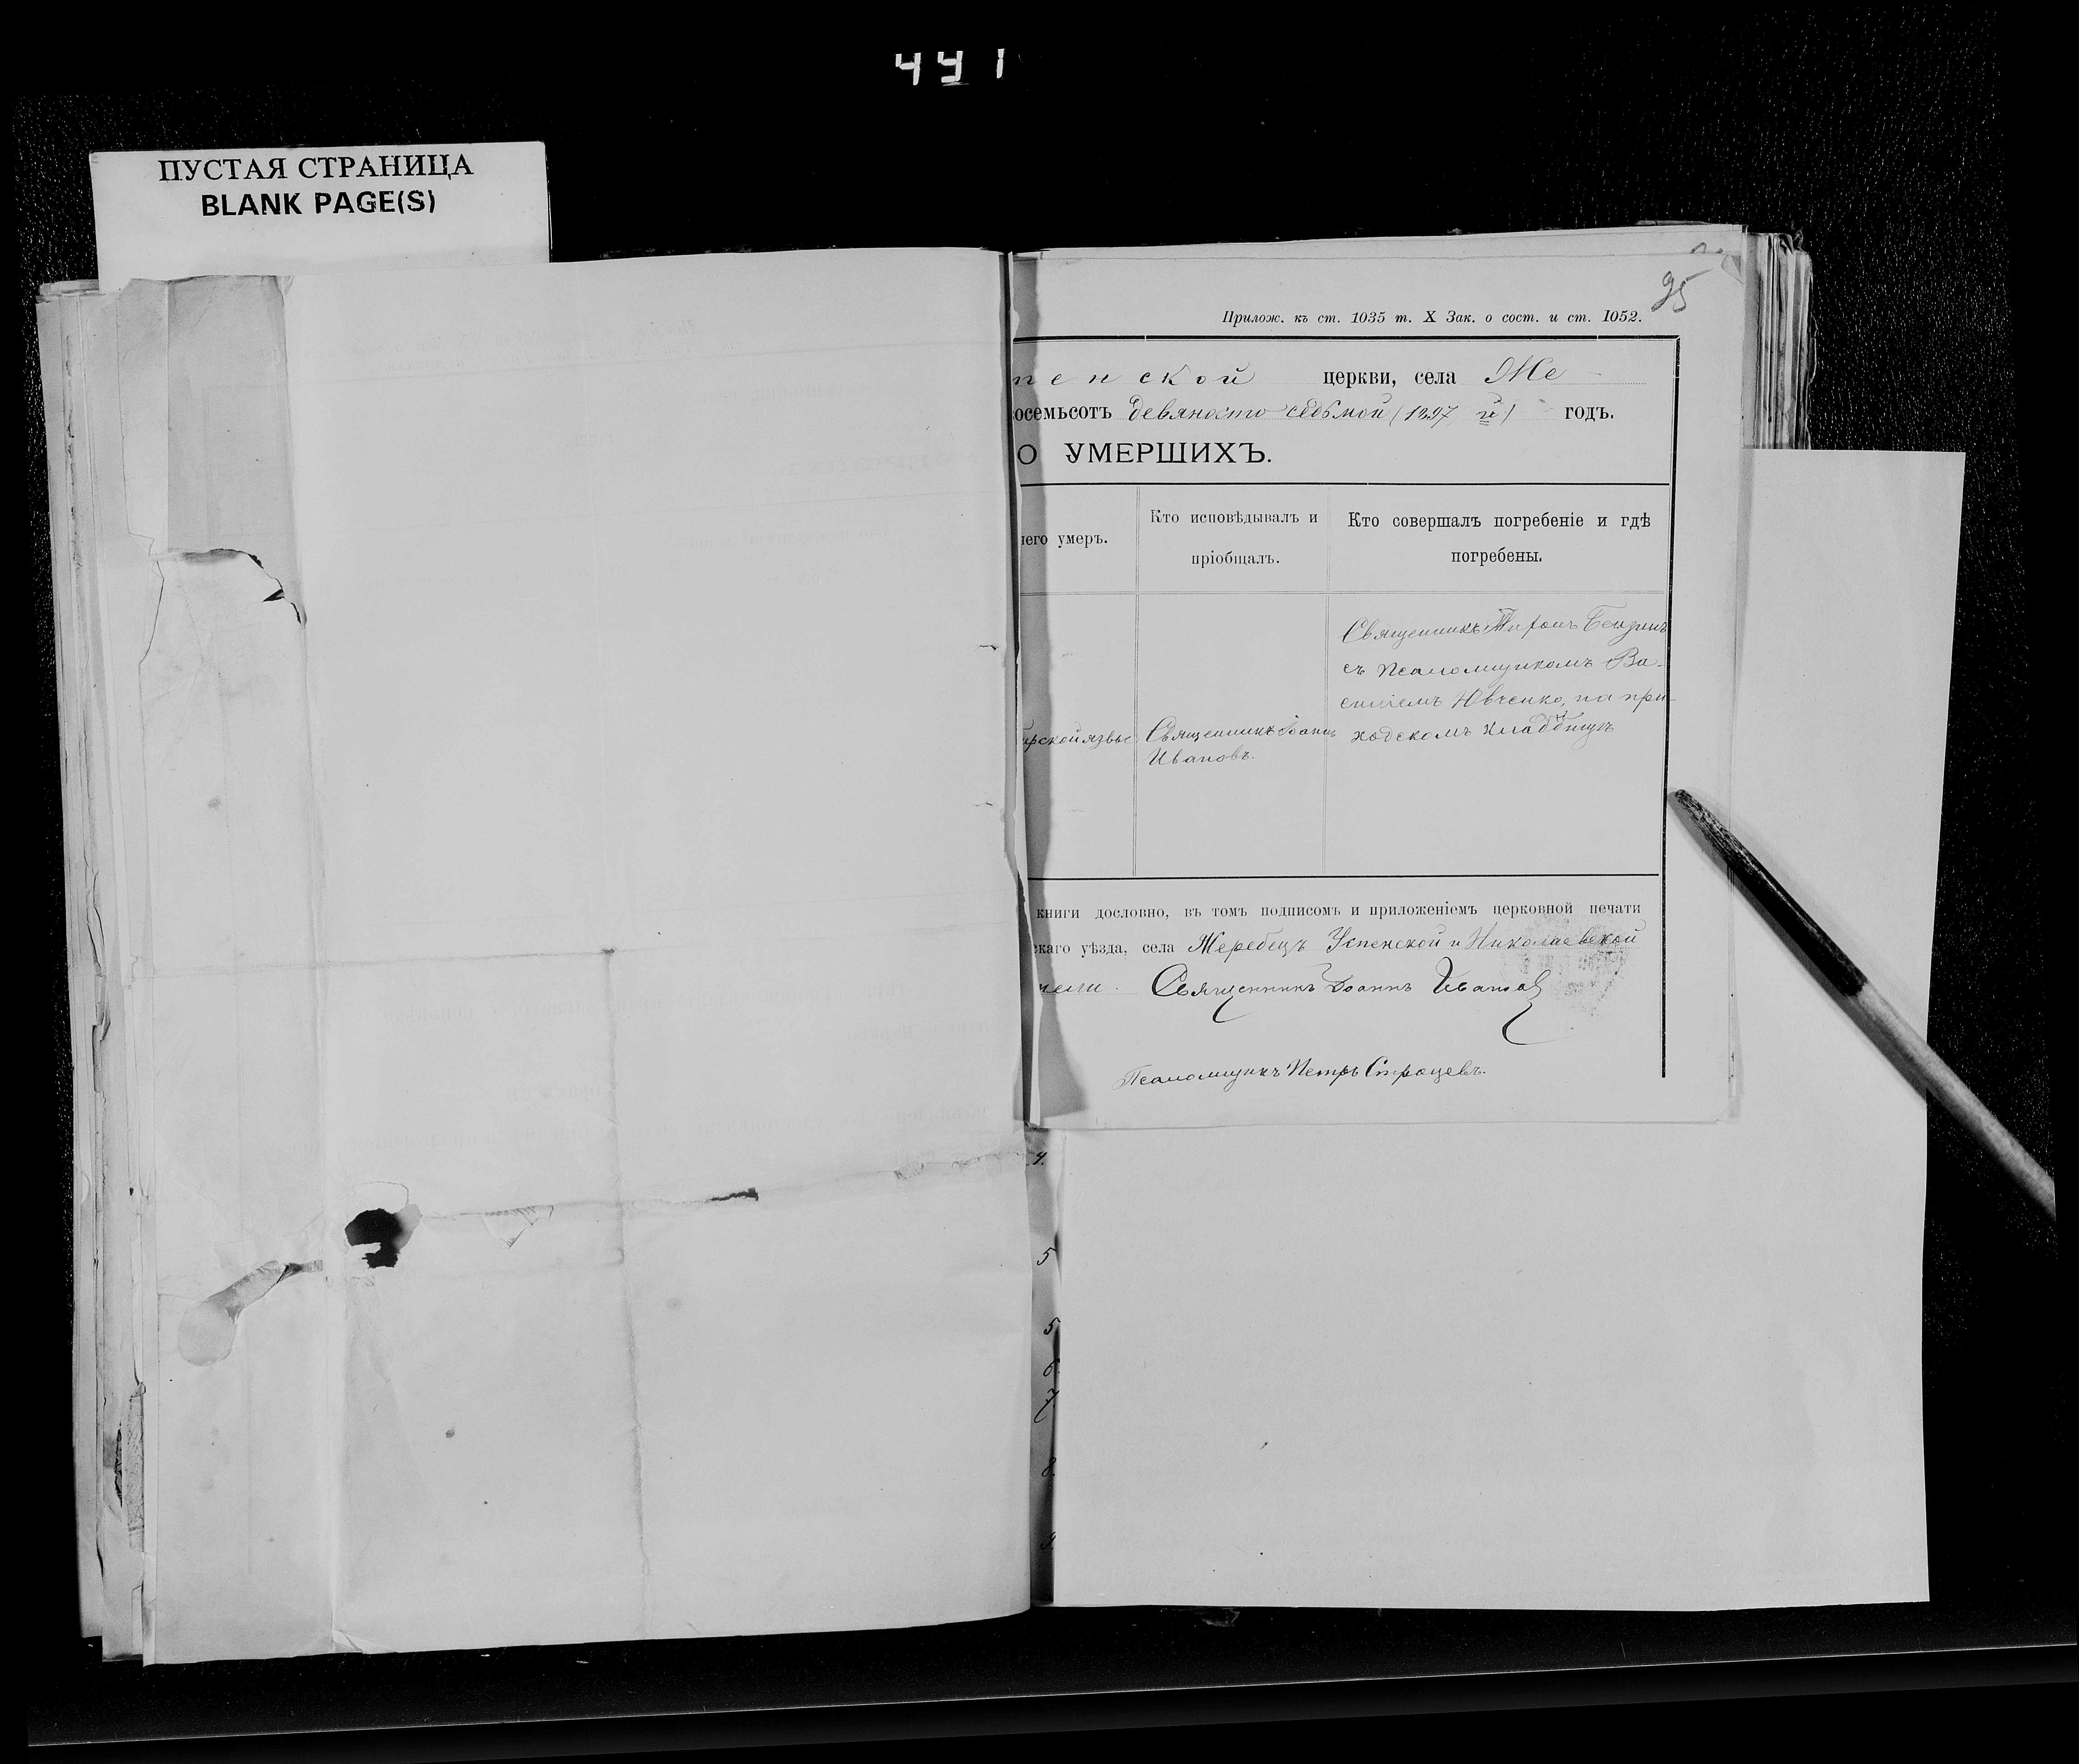 441
ПУСТАЯ СТРАНИЦА
BLANK PAGE(S)
95
Прилож. къ ст. 1035 т. X Зак. о сост. и ст. 1052.
пенской церкви, села Же
осемьсотъ девяносто седьмой (1897 й) годъ.
О УМЕРШИХЪ.
чего умеръ.
Кто исповѣдывалъ и
пріобщалъ.
Кто совершалъ погребеніе и гдѣ
погребены.
Священникъ
съ псаломщикомъ Ва-
силіемъ Ювченко, на при-
ходскомъ кладбищѣ
ирской язвы
Священникъ Іоаннъ
Ивановъ.
книги дословно, въ томъ подписомъ и приложеніемъ церковной печати
скаго уѣзда, села Жеребецъ Успенской и Николаевской
Священникъ Іоаннъ Ивановъ
Псаломщикъ Петръ
4.
5
5
6
7.
8.
9.